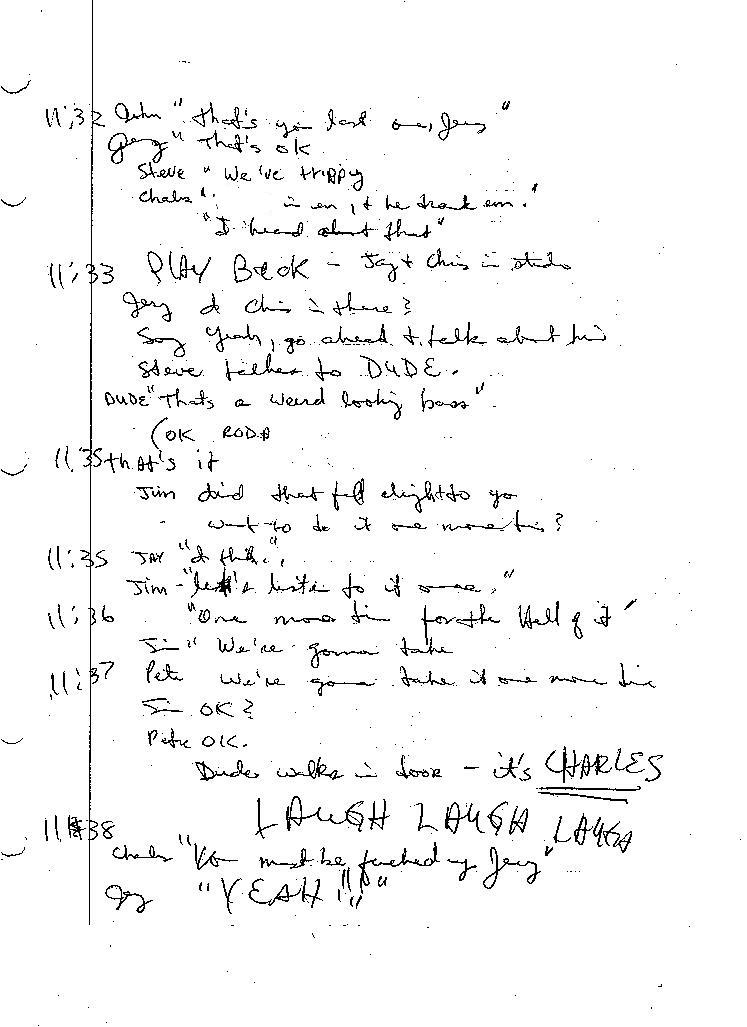 11:32 John "That's your last one, Jerry"
Jerry "That's OK
Steve "We've trippy
Charles " in en, & he drank em."
"I heard about that"
11:33 PLAY BACK - Jay & Chris in studio
Jerry is Chris in there?
Say Yeah, go ahead & talk about him
Steve talks to DUDE.
DUDE "That's a weird looking bass".
(OK
11:35 that's it
Jim did that feel alright to you
want to do it one more time?
11:35 JAY "I think",
Jim - "let's listen to it once."
11:36 "One more time for the Hell of it"
Jim "We're gonna take
11:37 Pete We're gonna take it one more time
Jim OK?
Pete OK.
Dude walks in door - it's CHARLES
LAUGH LAUGH LAUGH
11:38
Charles "You must be fucked up Jerry"
Jerry "YEAH!!!"